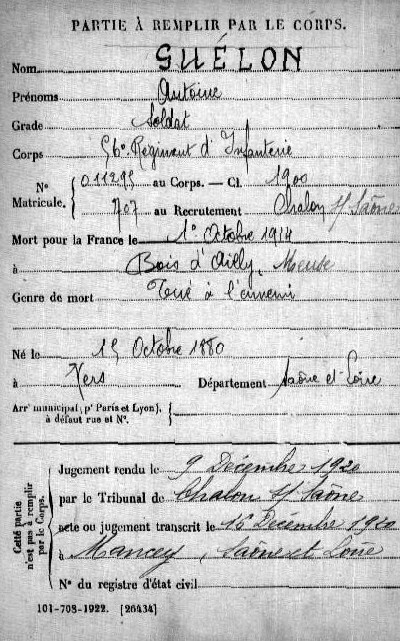 PARTIE À REMPLIR PAR LE CORPS.
Nom GUÉLON
Prénoms Antoine
Grade Soldat
Corps 56e Régiment d'Infanterie
N° Matricule. { 011295 au Corps. — Cl. 1900
707 au Recrutement Chalon s/ Saône
Mort pour la France le 1er Octobre 1914
à Bois d'Ailly, Meuse
Genre de mort Tué à l'ennemi
Né le 15 Octobre 1880
à Vers Département Saône et Loire
Arr. municipal (pr Paris et Lyon), à défaut rue et N°. {
Cette partie n'est pas à remplir par le Corps.
Jugement rendu le 9 Décembre 1920
par le Tribunal de Chalon s/ Saône
acte ou jugement transcrit le 16 Décembre 1920
à Mancey, Saône et Loire
N° du registre d'état civil
101-708-1922. [26434]